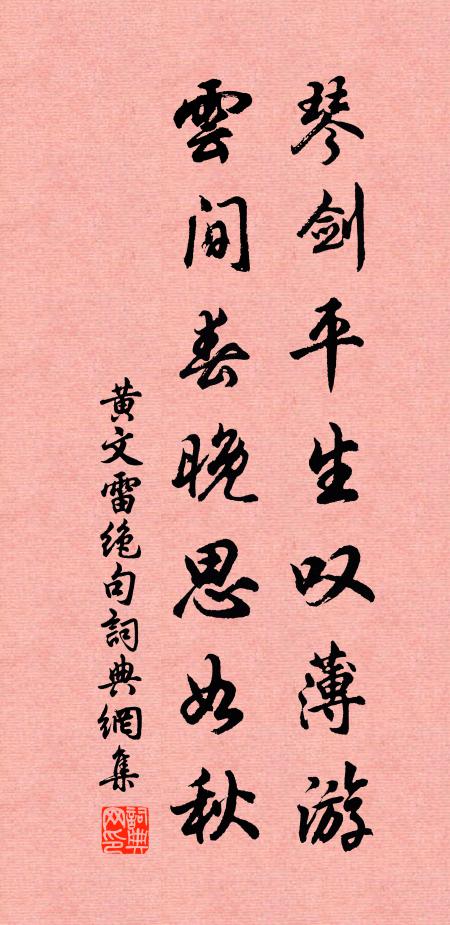 琴剑平生叹薄游
雲间春晚思如秋
黄文雷绝句詞典網集
詞典网印